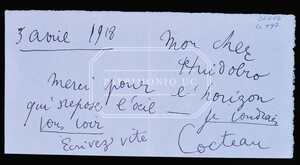 3 avril 1918
Mon cher
Huidobro
Merci pour l'horizon
qui repose l'œil — je voudrais
vous voir
Écrivez vite
Cocteau
PATRIMONIO UC